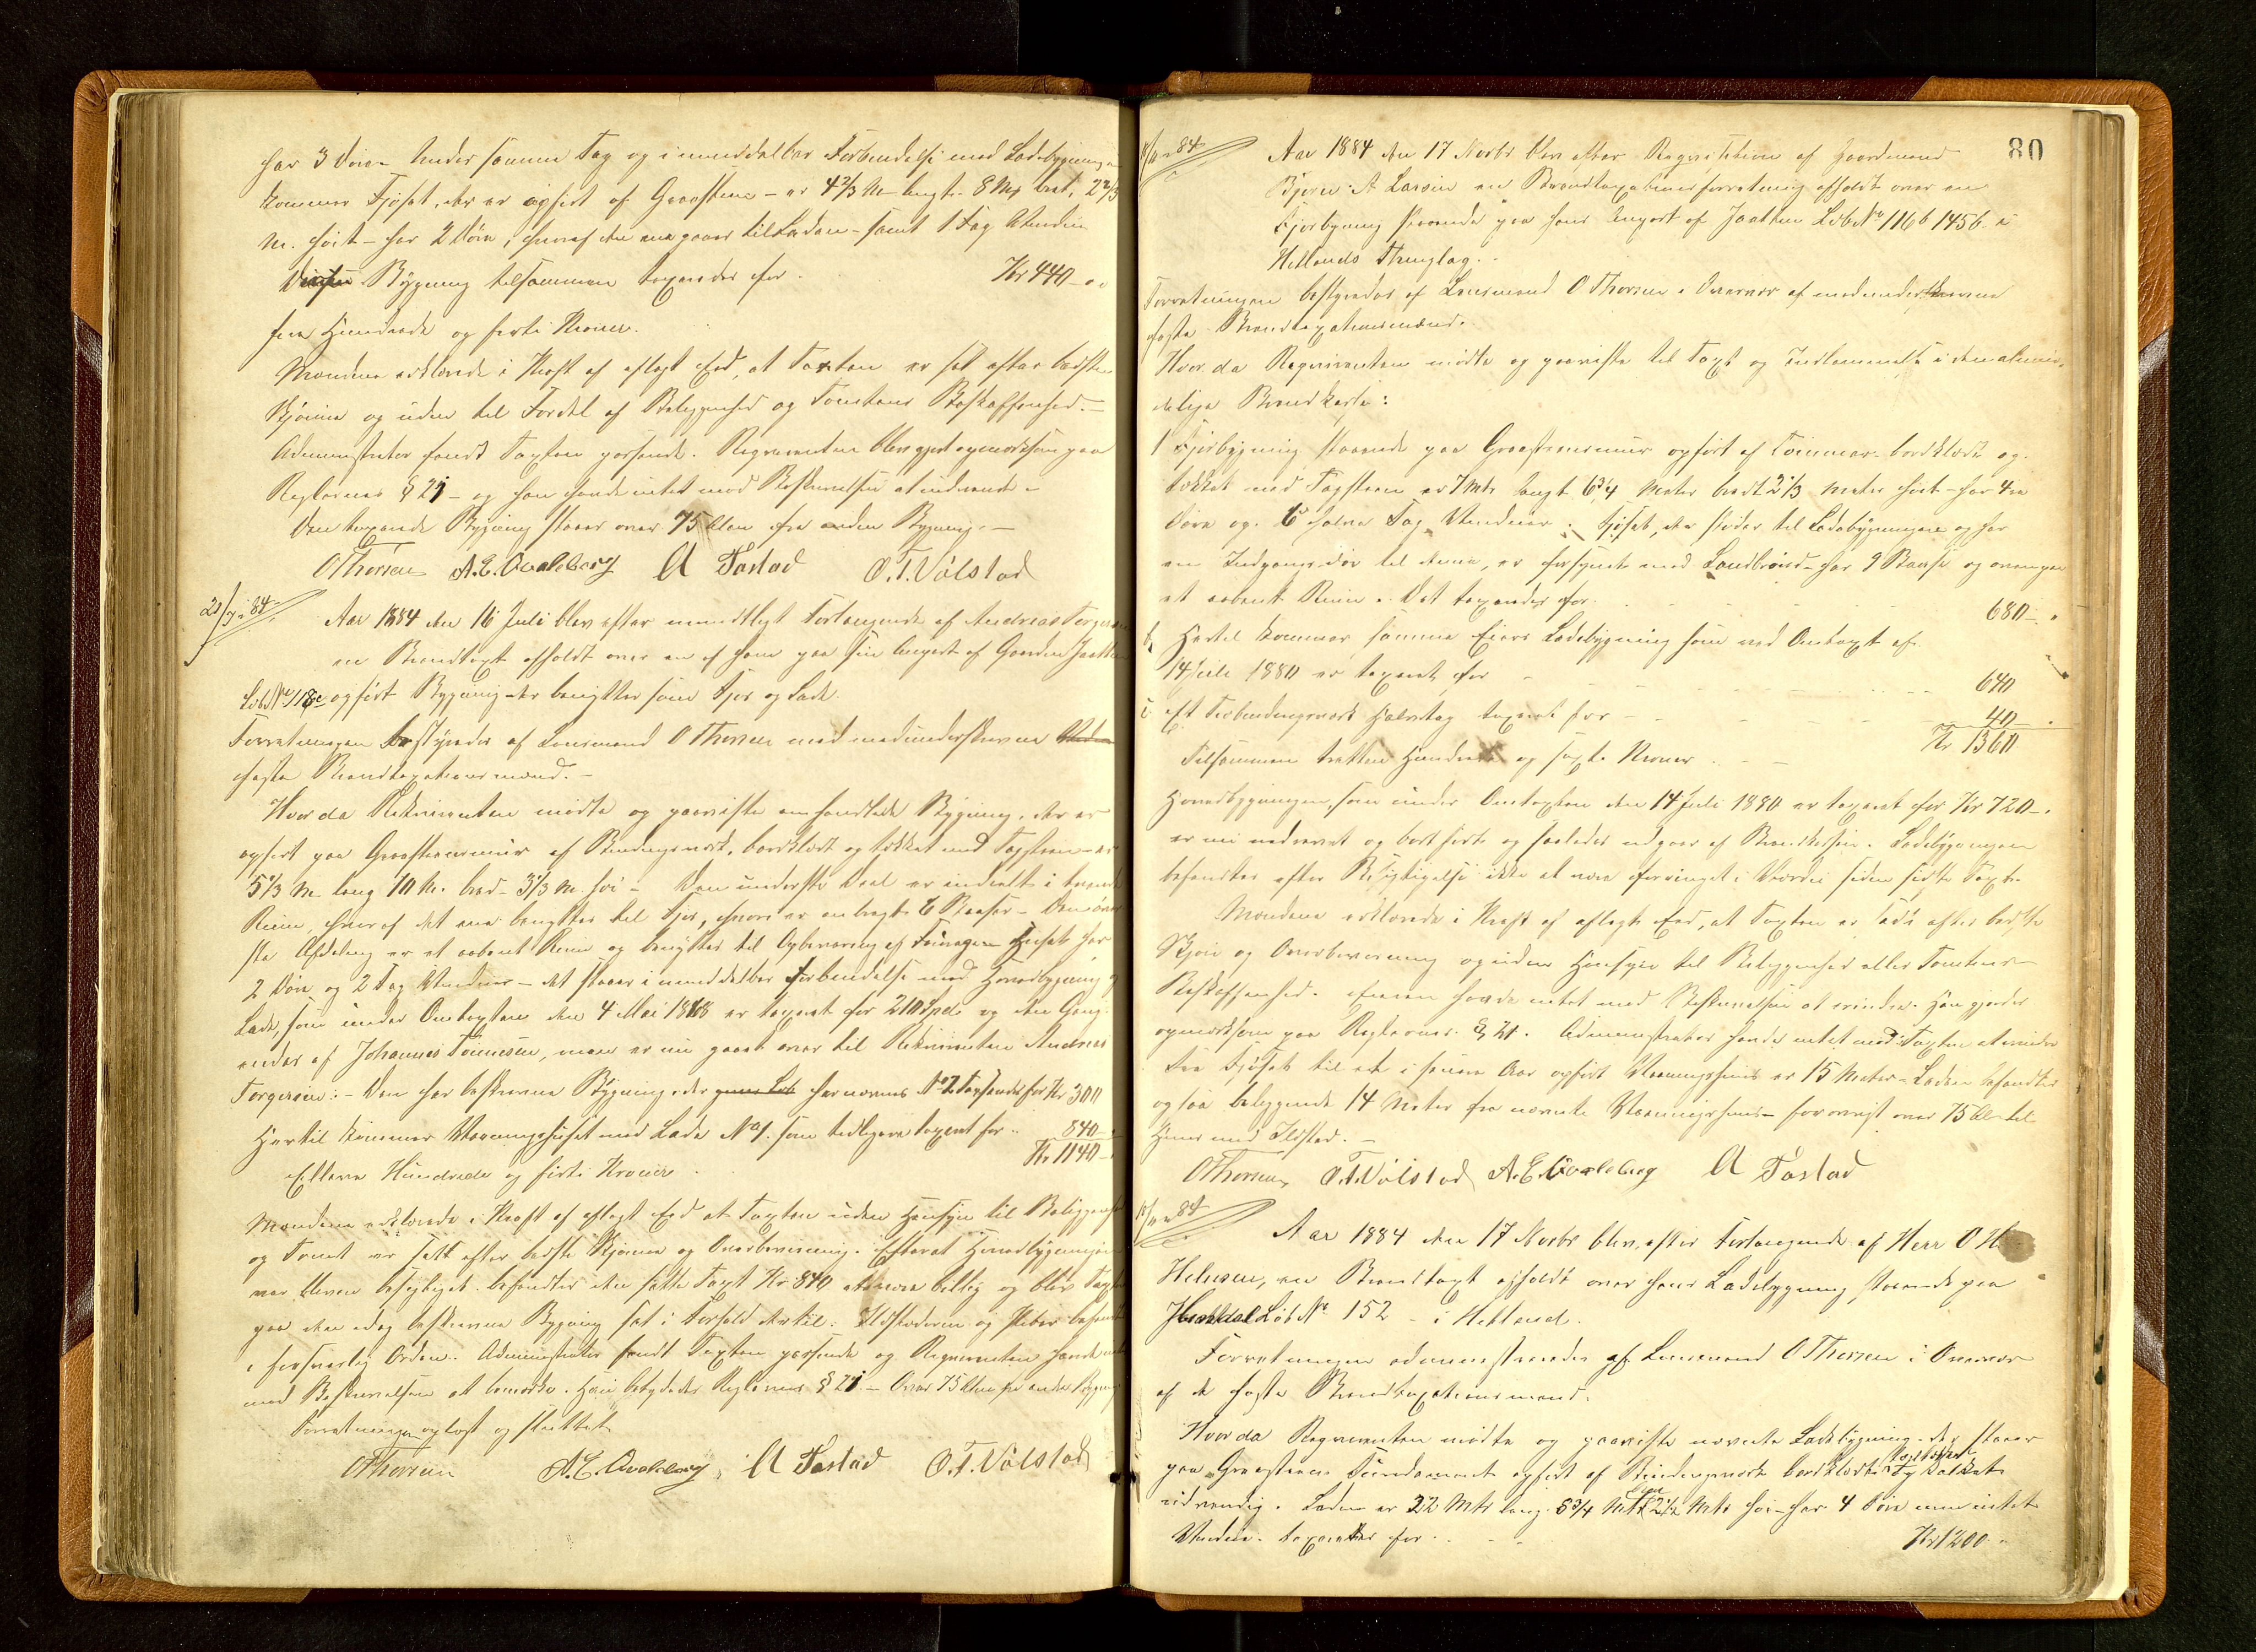 har 3 Døre. Under samme Tag og i umiddelbar Forbindelse med Ladebygningen
kommer Fjøset, der er opført af Graasteen - er 4 2/3 M lengt. 8 M bred, 2 2/3
M. høit - har 2 Døre, hvoraf den ene gaaer til Laden - samt 1 Fag Vinduer
Bygning tilsammen taxeredes for Kr 440 - "
fire Hundrede og førti Kroner.
Mændene erklærede i Kraft af aflagt Eed, at Taxten er sat efter bedste
Skjønne og uden til Fordel af Beliggenhed og Tomtens Beskaffenhed. -
Administrator fandt Taxten passende. Rekvirenten blev gjort opmærksom paa
Reglernes § 21 - og han havde intet mod Beskrivelsen at indvende -
Den taxerede Bygning staaer over 75 Alen fra anden Bygning. -
OThorsen A. E. Qvaleberg A Tastad O. T. Vølstad
21/7 - 84
Aar 1884 den 16 Juli blev efter mundtligt Forlangende af Andreas Torgersen
en Brandtaxt afholdt over en af ham paa sin Anpart af Gaarden Jaatten
Løb No 118c opført Bygning der benyttes som Fjøs og Lade.
Forretningen bestyredes af Lensmand O Thorsen med medunderskrevne
faste Brandtaxationsmænd. -
Hvor da Rekvirenten mødte og paaviste omhandlede Bygning, der er
opført paa Graasteensmuur af Bindingsverk, bordklædt og tækket med Tagsteen - er
5 1/3 M lang 10 M. bred - 3 1/3 M. høi - Den underste Deel er inddeelt i tvende
Rum, hvoraf det ene benyttes til Fjøs, hvori er anbragt 6 Baaser - Den øver-
ste Afdeling er et aabent Rum og benyttes til Opbevaring af Huset har
2 Døre og 2 Fag Vinduer - det staaer i umiddelbar Forbindelse med Hovedbygning og
Lade, som under Omtaxten den 4 Mai 1868 er taxeret for 210 Spd og den Gang
eiedes af Johannes Tønnesen, men er nu gaaet over til Rekvirenten Andreas
Torgersen: - Den her beskrevne Bygning, der her nævnes No 2 taxeredes for Kr 300
Hertil kommer Vaaningshuset med Lade No 1. som tidligere taxeret for .. 840 -
Kr 1140 -
Elleve Hundrede og førti Kroner
Mændene erklærede i Kraft af aflagt Eed at Taxten uden Hensyn til Beliggenhed
og Tomt er satt efter bedste Skjønne og Overbeviisning. Efterat Hovedbygningen
var bleven besigtiget befandtes den satte Taxt Kr 840 at være billig og blev Taxten
paa den idag beskrevne Bygning sat i Forhold dertil. Ildstederne og Piber befandtes
i forsvarlig Orden. Administrator fandt Taxten passende og Rekvirenten havde intet
mod Beskrivelsen at bemærke. Han betydedes Reglernes § 21. - Over 75 Alen fra anden Bygning
Forretningen oplæst og sluttet
OThorsen A. E. Qvaleberg, A Tastad O. T. Vølstad
80
84
Aar 1884 den 17 Novbr blev efter Requisition af Gaardmand
Bjørn A Larsen en Brandtaxationsforretning afholdt over en
Fjøsbygning staaende paa hans Anpart af Jaatten Løb No 116b 145b i
Hetlands Thinglag. -
Forretningen bestyredes af Lensmand O Thorsen i Overvær af medunderskrevne
faste Brandtaxationsmænd.
Hvor da Requirenten mødte og paaviste til Taxt og Indlemmelse i den almin-
delige Brandkasse:
1 Fjøsbygning staaende paa Graasteensmuur opført af Tømmer bordklædt og
tækket med Tagsteen er 7 Mtr langt 6 3/4 Meter bredt 2 1/3 Meter høit - har 4re
Døre og 6 halve Fag Vinduer. Fjøset, der støder til Ladebygningen og har
en Indgangsdør til denne, er forsynet med - har 9 Baase og ovenpaa
et aabent Rum. Det taxeredes for. 680 - "
b, Hertil kommer samme Eiers Ladebygning som ved Omtaxt af
14 Juli 1880 er taxeret for - 640
c Et Bindingsverks Halvtag taxeret for - 40 - .
Kr 1360
Tilsammen tretten Hundrede og sexti Kroner. - -
Hovedbygningen, som under Omtaxten den 14 Juli 1880 er taxeret for Kr 720 -.
er nu nedrevet og bortført og saaledes udgaar af Brandkassen. Ladebygningen
befandtes efter Besigtigelse ikke at være forringet i Værdi siden sidste Taxt.
Mændene erklærede i Kraft af aflagte Eed, at Taxten er sat efter bedste
Skjøn og Overbeviisning og uden Hensyn til Beliggenhed eller Tomtens
Beskaffenhed. Eieren havde intet mod Beskrivelsen at erindre. Han gjordes
opmærksom paa Reglernes § 21. Administrator havde intet mod Taxten at erindre
Fra Fjøset til et i senere Aar opført Vaaningshuus er 15 Meter - Laden befandtes
ogsaa beliggende 14 Meter fra nævnte Vaaningshuus - forøvrigt over 75 Alen til
Huus med Ildsted. -
OThorsen, O. T. Vølstad A. E. Qvaleberg A Tastad
84
Aar 1884 den 17 Novbr blev efter Forlangende af Herr O H
Helvesen, en Brandtaxt afholdt over hans Ladebygning staaende paa
Løb No 152 - i Hetland.
Forretningen administreredes af Lensmand OThorsen i Overvær
af de faste Brandtaxationsmænd.
Hvor da Requirenten mødte og paaviste nævnte Ladebygning der staaer
paa Graasteens Fundament opført af Bindingsverk bordklædt
udvendig. Laden er 22 Mtr lang 6 3/4 Mtr 2 1/2 Mtr høi - har 4 Døre men intet
Vindue. taxeredes for - - Kr 1200 "